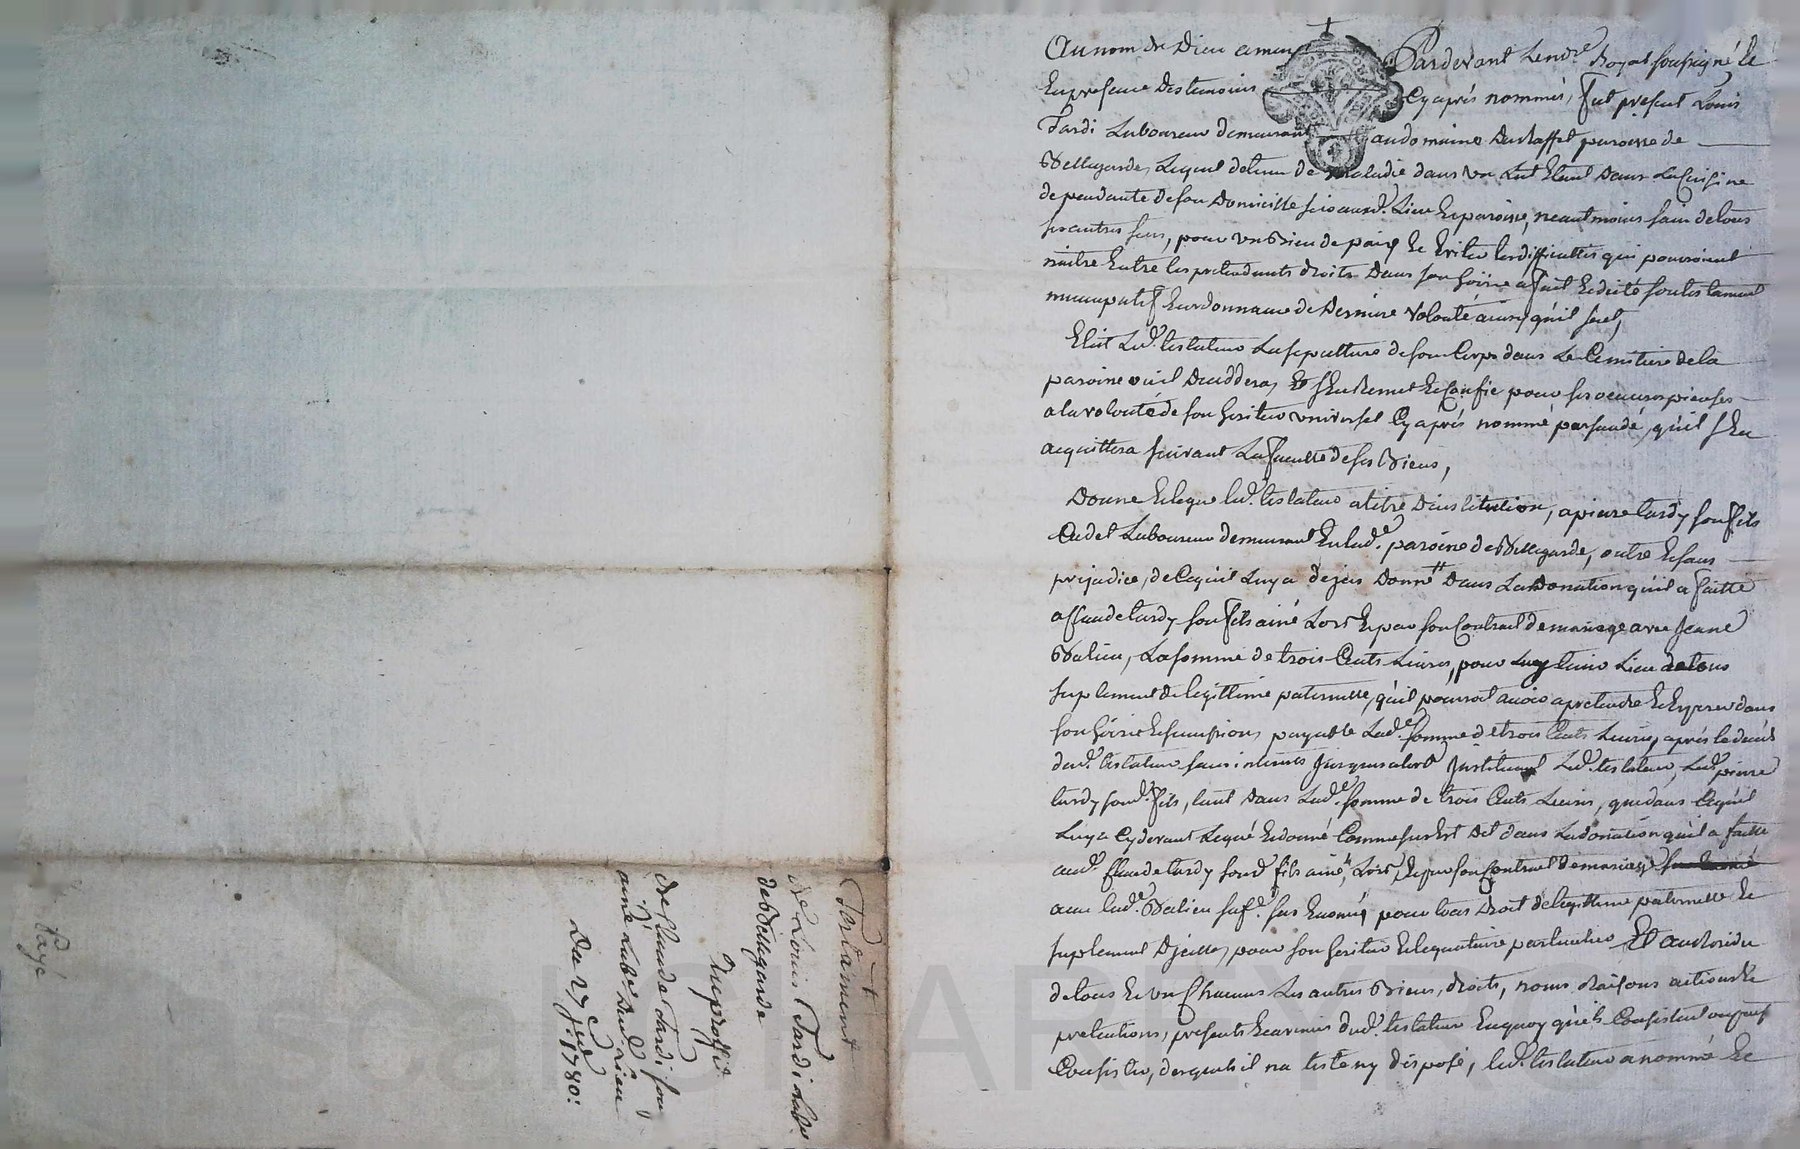 Au nom de Dieu amen Pardevant Le no.re Royal soussigné Et
En presence des temoins Cy après nommés, fut present Louis
Tardi Laboureur demeurant au domaine paroisse de
Bellegarde, Lequel detenu de maladie dans un Lit Etant dans La Cuisine
dependante de son Domicille Lieu & paroisse, neantmoins sain de tous
ses autres sens, pour un Bien de paix Et Eviter les difficultés qui pourroient
naitre Entre les pretendants droits Dans son a fait Edicté son testament
nuncupatif & ordonnance de Derniere Volonté ainsy qu'il suit,
Elit Led. testateur La sepulture de son Corps dans Le Cimetiere de la
paroisse où il Deceddera, Et s'En Remet & Confie pour ses oeuvres pieuses
a la volonté de son heritier universel Cy après nommé persuadé, qu'il s'En
acquittera suivant La faculté de ses Biens,
Donne & legue led. testateur a titre D'institution, a pierre tardy son fils
Cadet Laboureur demeurant En lad. paroisse de Bellegarde, outre & sans
prejudice, de Ce qu'il Luy a deja Donné Dans La Donation qu'il a faitte
a Claude tardy son fils ainé Lors & par son Contrat de mariage avec Jeanne
La somme de trois Cents Livres, pour Luy tenir Lieu de tous
suplement de legittime paternelle, qu'il pourroit avoir a pretendre & Exiger dans
son payable Lad. somme de trois Cents Livres, après le deces
dud. testateur sans interets jusques alors instituant Led. testateur, Led. pierre
tardy sond. fils, tant Dans Lad. somme de trois Cents Livres, que dans Ce qu'il
Luy a Cy devant Legué & donné Comme sus Est Dit dans La donation qu'il a faitte
aud. Claude tardy sond. fils ainé, Lors, & par son Contrat de mariage
avec lad. pour tous Droit de legittime paternelle Et
suplement D'jcelle, pour son heritier & legataire particulier Et au Residu
de tous & un Chacuns Les autres Biens, droits, noms Raisons actions &
pretentions, presents & avenirs dud. testateur En quoy qu'ils Consistent ou puissent
Consister, desquels il n'a testé ny disposé, led. testateur a nommé Et
Testament
de Louis Tardi Labr
de Bellegarde
Au proffit
de Claude Tardi son
ainé Labr Dud Lieu
Du 27 1780:
Payé